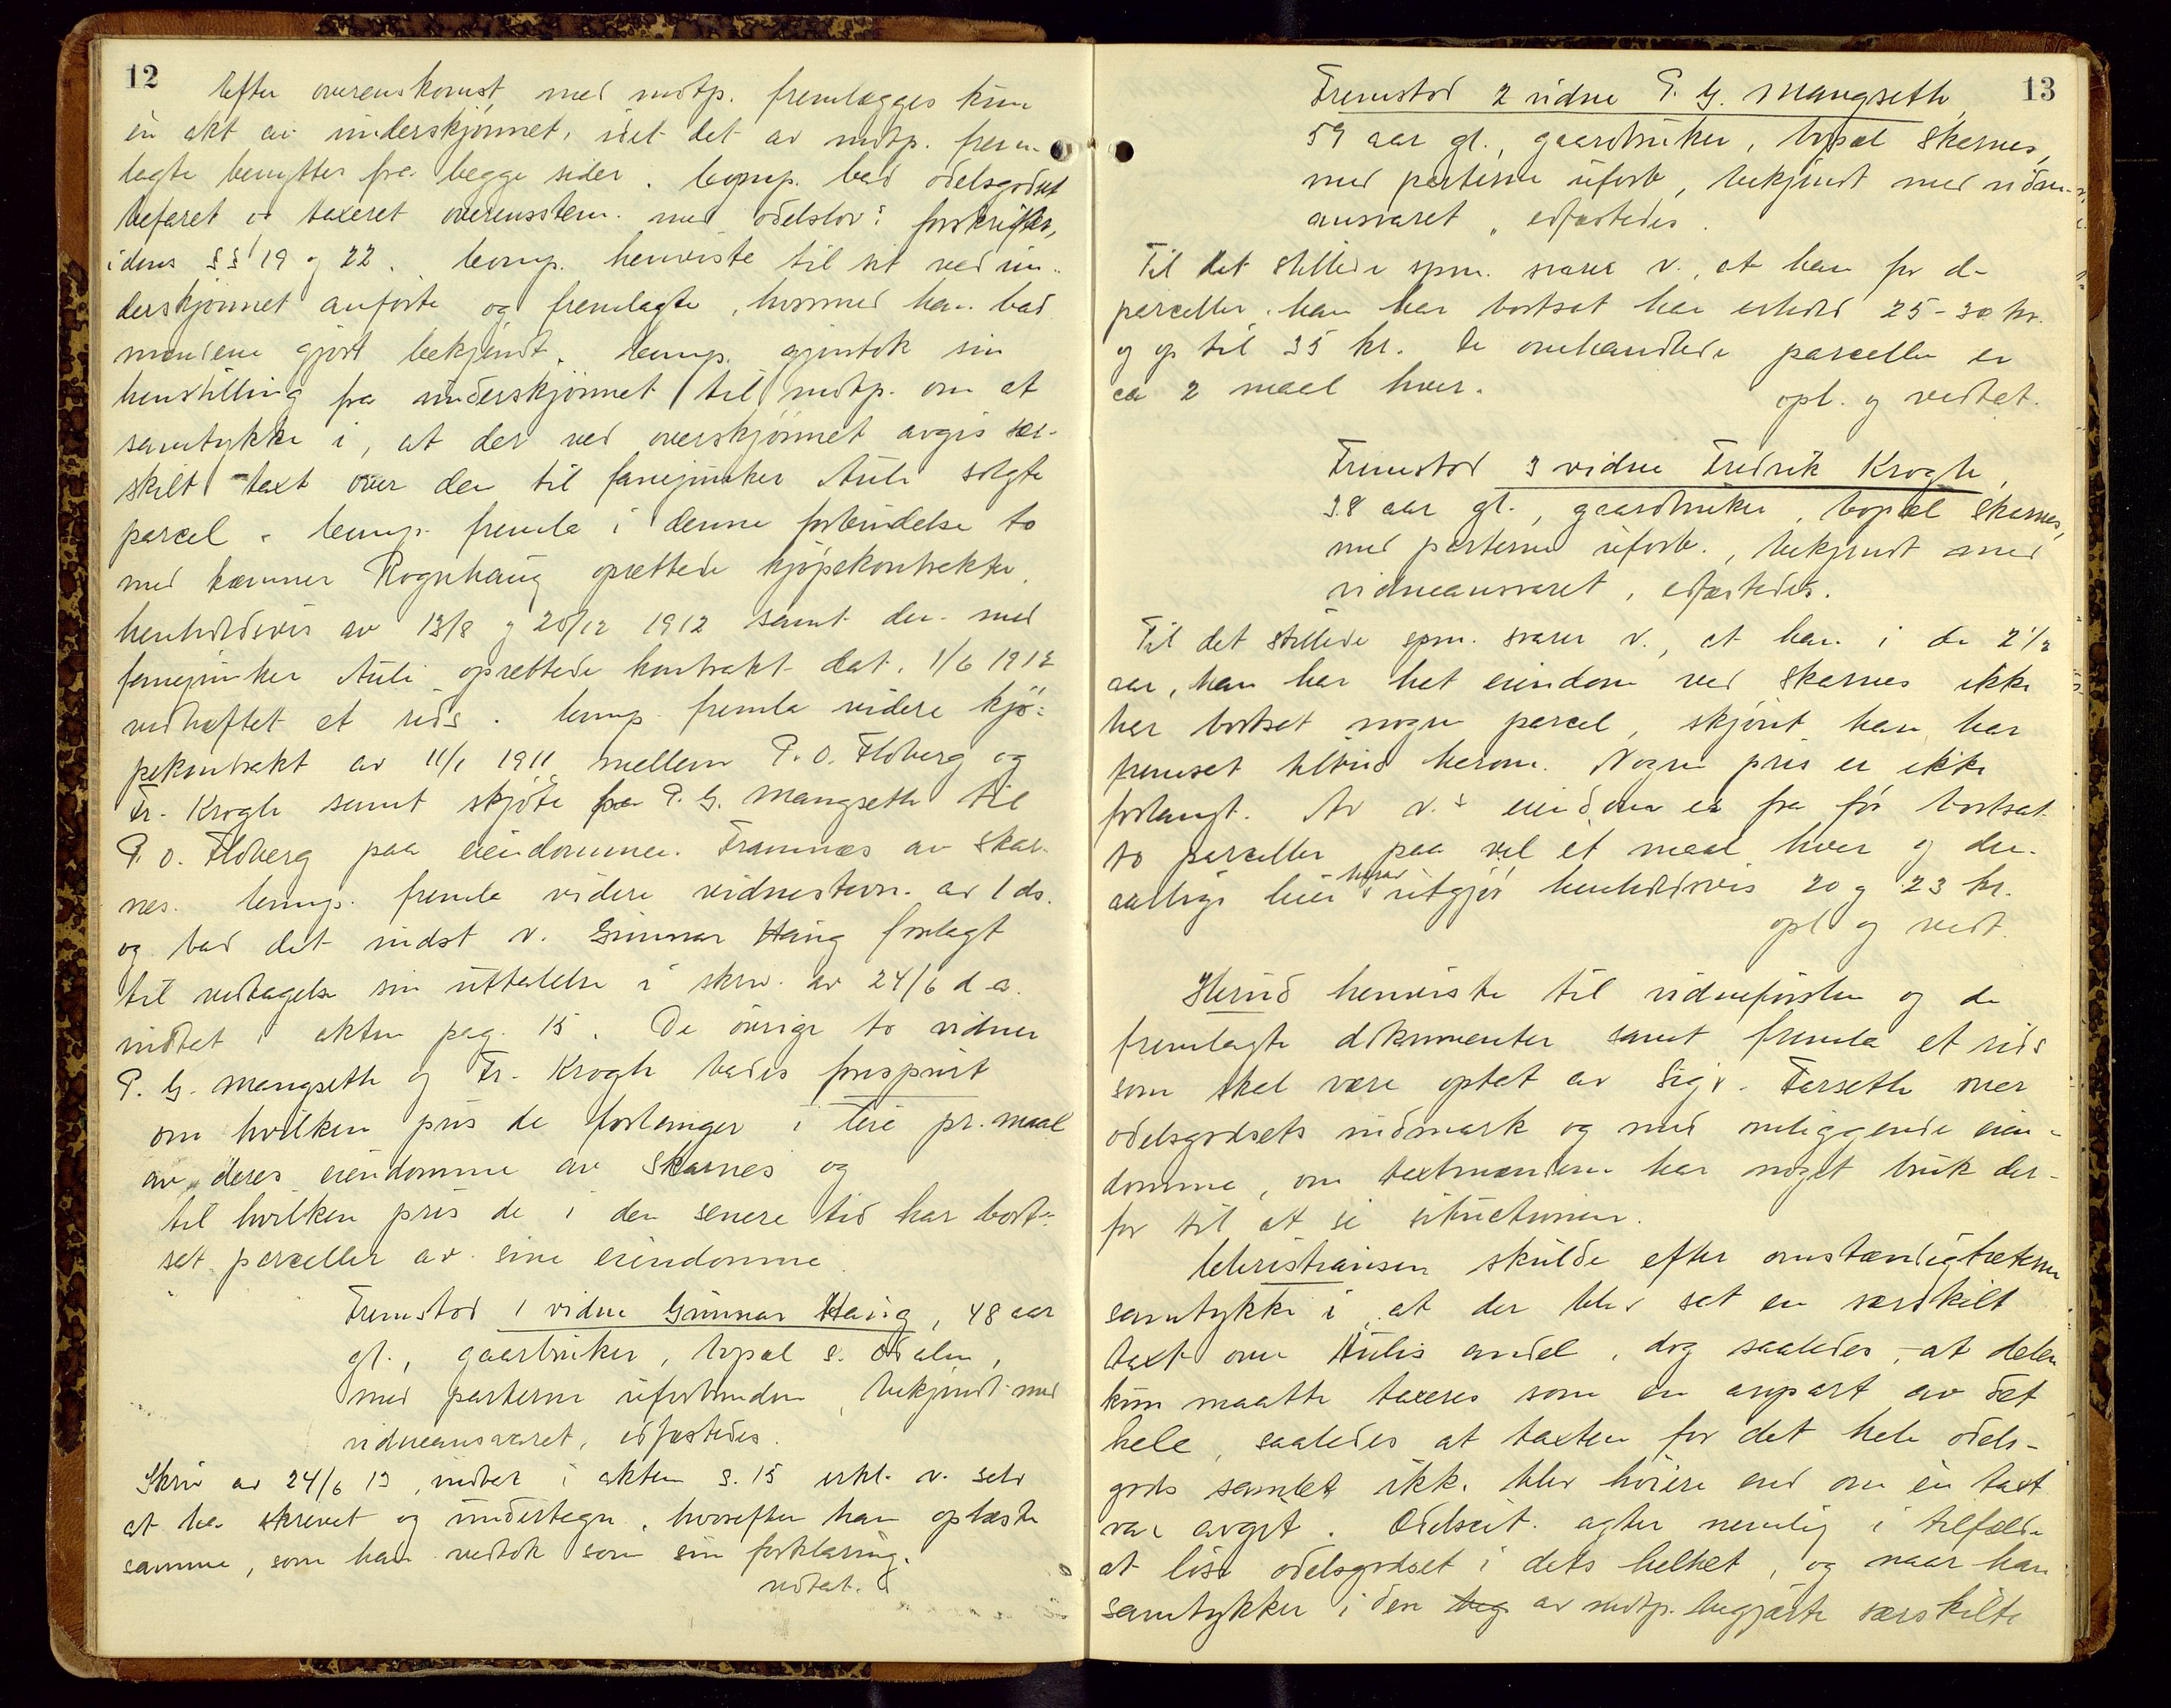 12
Efter overenskomst med motp. fremlægges kun
én akt av underskjønnet, idet det av motp. frem-
lagte benyttes fra begge sider. Comp. bad odelsgodset
befaret og taxeret overensstem. med odelslov: forskrifter,
idens §§ 19 og 22. Comp. henviste til sit ved un-
derskjønnet anførte og fremlagte, hvormed han bad
mændene gjort bekjendt. Comp. gjentok sin
henstilling fra underskjønnet til motp. om at
samtykke i, at der ved overskjønnet avgis sær-
skilt taxt over den til fanejunker Auli solgte
parcel. Comp. fremla i denne forbindelse to
med kæmner Rognhaug oprettede kjøpekontrakter,
henholdsvis av 13/8 og 20/12 1912 samt den med
fanejunker Auli oprettede kontrakt dat. 1/6 1912
vedhæftet et rids. Comp. fremla videre kjø-
pekontrakt av 11/1 1911 mellem P. O. Floberg og
Fr. Krogh samt skjøte fra P. G. Mangseth til
P. O. Floberg paa eiendommen Framnæs av Skar-
nes. Comp. fremla videre vidnestevn. av 1 ds.
og bad det indst. v. Gunnar Haug forelagt
til vedtagelse sin uttalelse i skriv. av 24/6 d. a.
indtat i akten pag. 15. De øvrige to vidner
P. G. Mangseth og Fr. Krogh bades forespurt
om hvilken pris de forlanger i leie pr. maal
av deres eiendomme av Skarnes og
til hvilken pris de i den senere tid har bort-
sat parceller av sine eiendomme.
Fremstod 1 vidne Gunnar Haug, 48 aar
gl., gaarbruker, bopæl S. Odalen,
med parterne uforbunden, bekjendt med
vidneansvaret, edfæstedes.
Skriv av 24/6 13, indtat i akten s. 15 erkl. v. selv
at ha skrevet og undertegn., hvorefter han oplæste
samme, som han vedtok som sin forklaring.
vedtat.
13
Fremstod 2 vidne P. G. Mangseth,
59 aar gl., gaardbruker, bopæl Skarnes,
med parterne uforb., bekjendt med vidne-
ansvaret, edfæstedes.
Til det stillede spm. svarer v., at han for de
parceller han har bortsat har erholdt 25-30 kr.
og op til 35 kr. De omhandlede parceller er
ca 2 maal hver.
opl. og vedtat.
Fremstod 3 vidne Fredrik Krogh,
38 aar gl., gaardbruker, bopæl Skarnes,
med parterne uforb., bekjendt med
vidneansvaret, edfæstedes.
Til det stillede spm. svarer v., at han i de 2 1/2
aar, han har hat eiendom ved Skarnes ikke
har bortsat nogen parcel, skjønt han har
fremsat tilbud herom. Nogen pris er ikke
forlangt. Av v.s eiendom er fra før bortsat
to parceller paa vel et maal hver og den
aarlige leie herav utgjør henholdsvis 20 og 23 kr.
opl og vedt.
Herud henviste til vidneførslen og de
fremlagte dokumenter samt fremla et rids
som skal være optat av Sigv. Farseth over
odelsgodsets indmark og med omliggende eien-
domme, om taxtmændene har noget bruk der-
for til at se situationen.
Christiansen skulde efter omstændigheterne
samtykke i, at der blev sat en særskilt
taxt over Aulis andel, dog saaledes, at delen
kun maatte taxeres som en anpart av det
hele, saaledes at taxten for det hele odels-
gods samlet ikke blev høiere end om én taxt
var avgit. Odelscit. agter nemlig i tilfælde
at løse odelsgodset i dets helhet, og naar han
samtykker i den beg av motp. begjærte særskilte